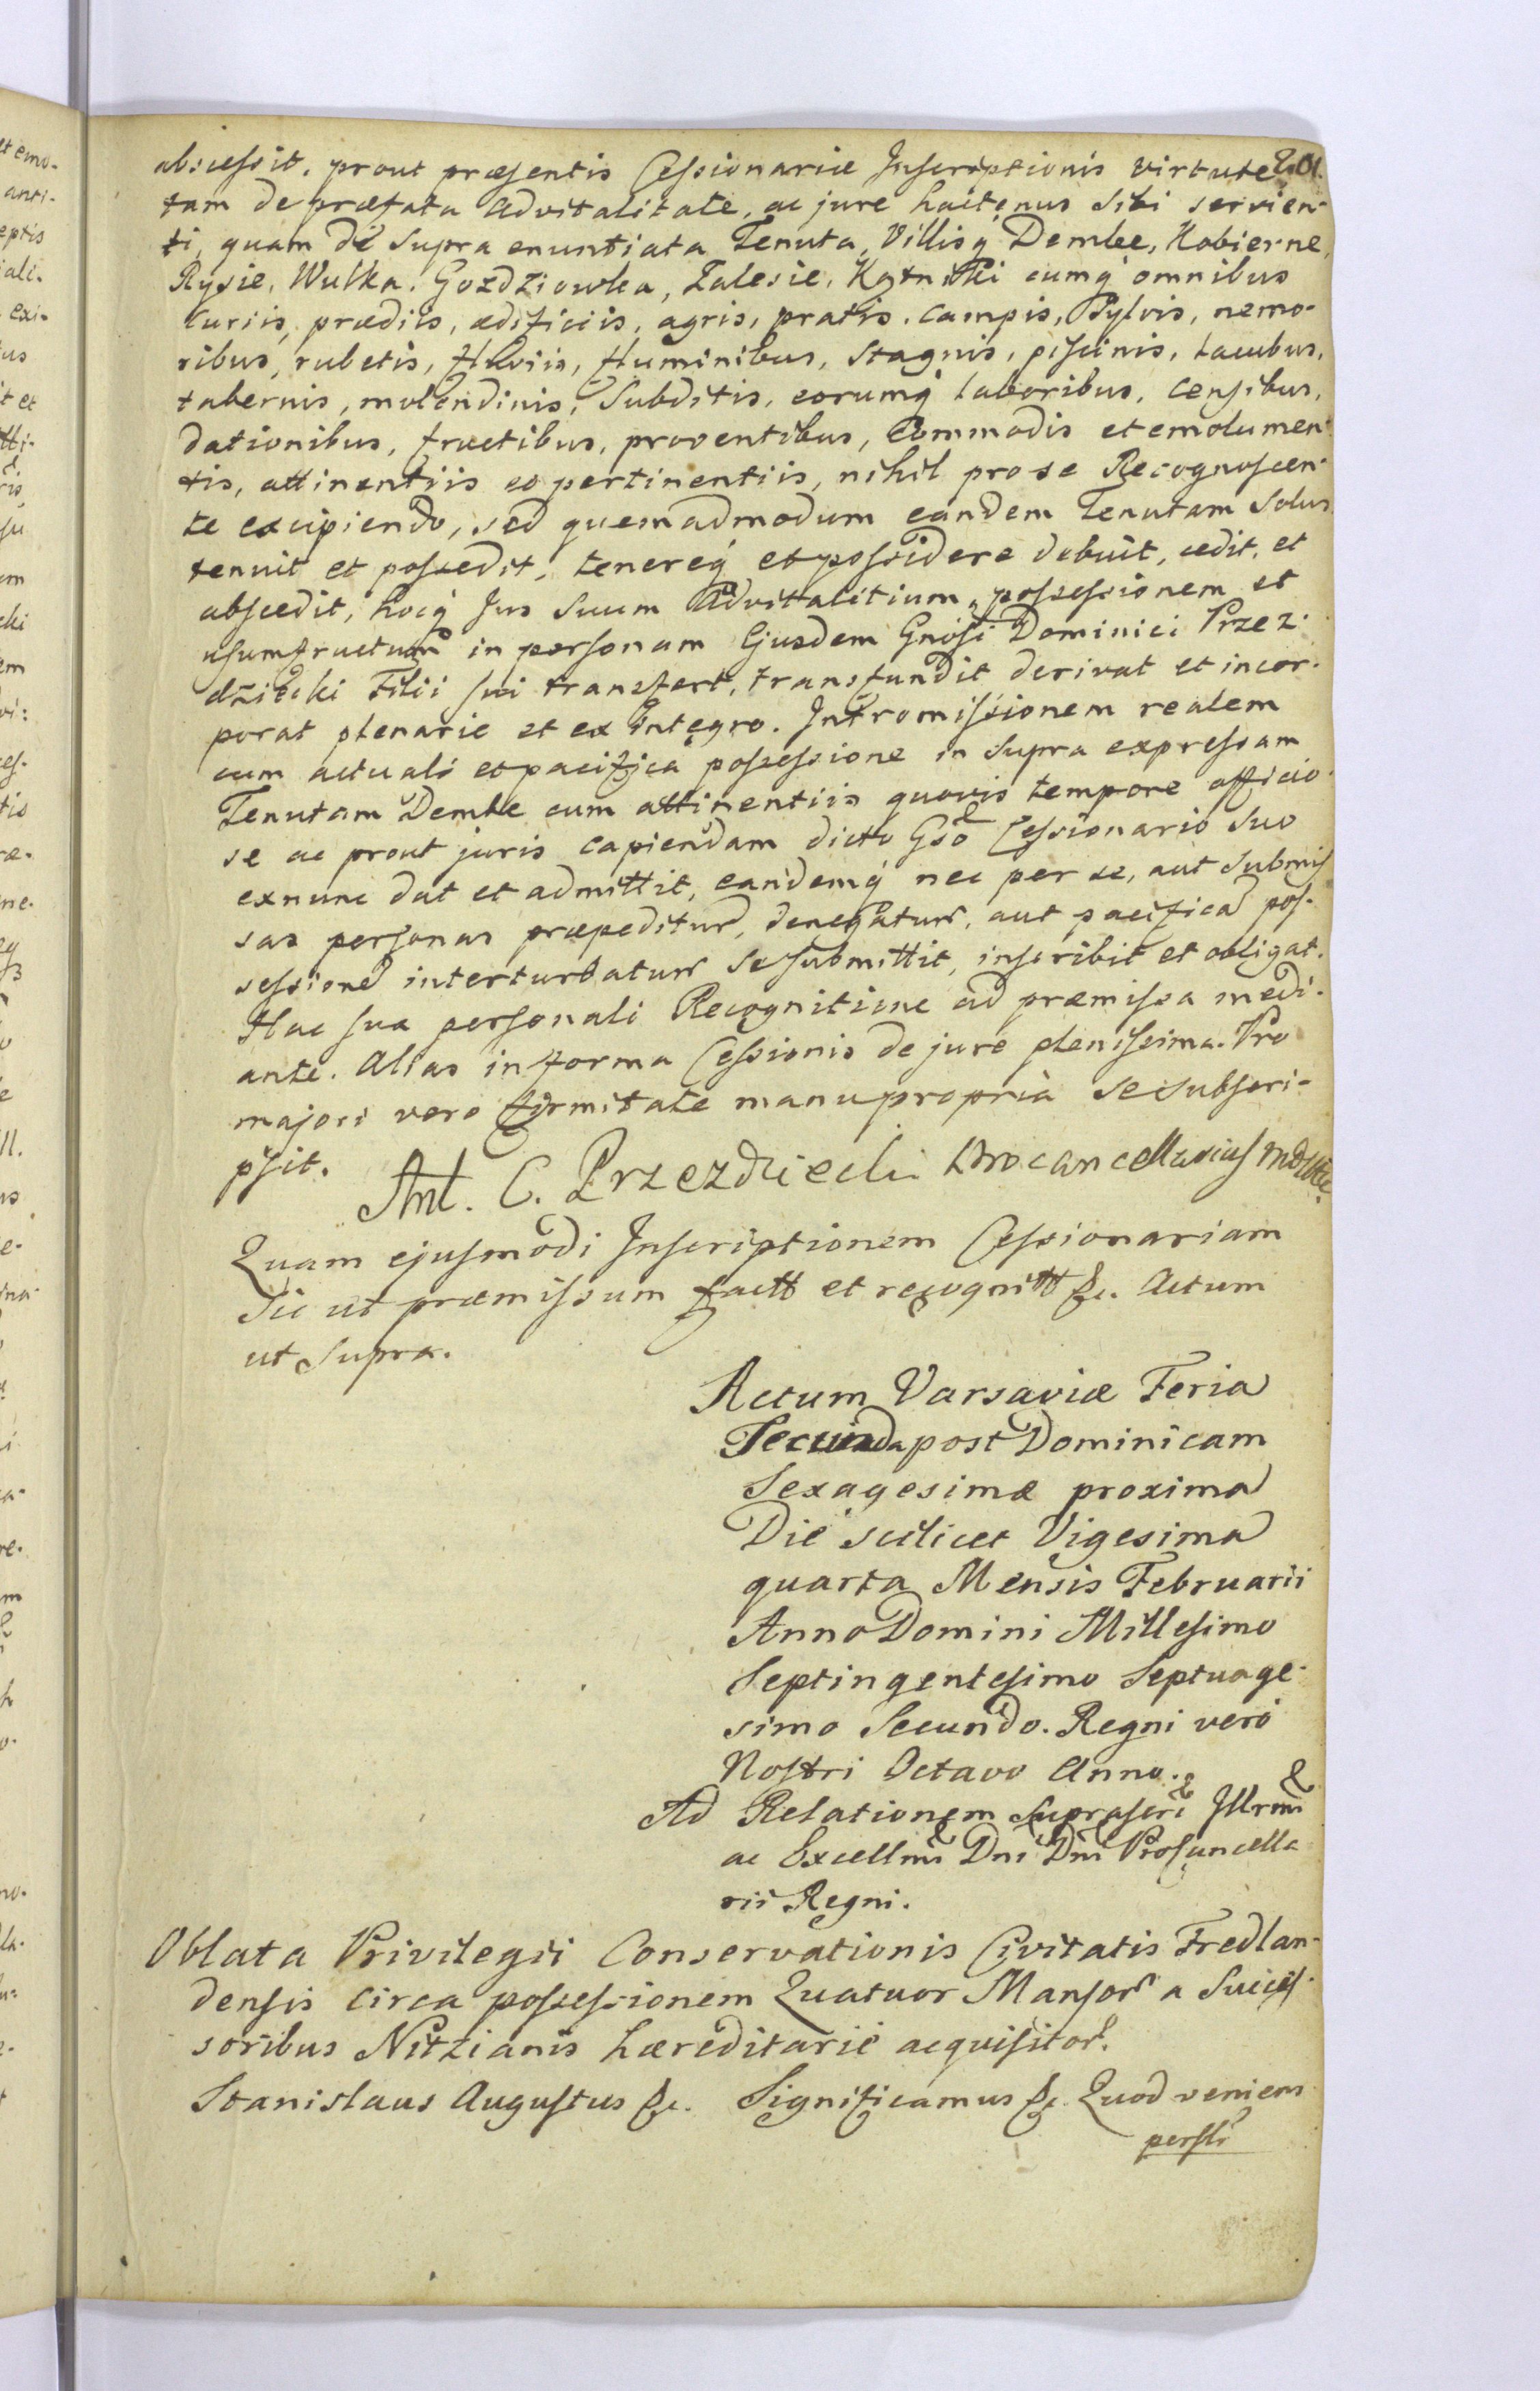 abscessit, prout præsentis Cessionariæ Inscriptionis virtute 201.
tam de præfata Advitalitate, ac jure hactenus sibi servien-
ti, quam de supra enuntiata Tenuta, Villisq Dembe, Kobierne,
Rysie, Wulka, Gozdziowka, Zalesie, cumq omnibus
Curiis, prædiis, ædificiis, agris, pratis, campis, Sylvis, nemo-
ribus, rubetis, fluviis, fluminibus, Stagnis, piscinis, lacubus,
tabernis, molendinis, Subditis, eorumq laboribus, censibus,
dationibus, fructibus, proventibus, Commodis et emolumen-
tis, attinentiis et pertinentiis, nihil pro se Recognoscen-
te excipiendo, sed quemadmodum eandem Tenutam Solus
tenuit et possedit, tenereq et possidere debuit, cedit, et
abscedit, hocq Jus Suum Advitalitium, possessionem et
usumfructum in personam Ejusdem Gnosi Dominici Przez-
dziecki Filii sui transfert, transfundit derivat et incor-
porat plenarie et ex integro. Intromissionem realem
cum actuali et pacifica possessione in Supra expressam
Tenutam Dembe cum attinentiis quovis tempore officio-
se ac prout juris capiendam dicto Gso Cessionario Suo
exnunc dat et admittit, eandemq nec per se, aut Submis
sas personas præpeditur, denegatur, aut pacifica pos-
sessione interturbatur se submittit, inscribit et obligat.
Hac sua personali Recognitione ad præmissa medi-
ante. Alias in forma Cessionis de jure plenissima. Pro
majori vero firmitate manu propria se subscri-
psit. Ant. C. Przezdziecki Procancellarius
Quam ejusmodi Inscriptionem Cessionariam
Sic ut præmissum factt et recognitt &c. Actum
ut Supra.
Actum Varsaviæ Feria
Secunda post Dominicam
Sexagesimæ proxima
Die scilicet Vigesima
quarta Mensis Februarii
Anno Domini Millesimo
Septingentesimo Septuage-
simo Secundo. Regni vero
Nostri Octavo Anno.
Ad Relationem suprascri Illrmi
ac Excellmi Dni Dni Procancella
rii Regni.
Oblata Privilegii Conservationis Civitatis Fredlan-
densis circa possessionem Quatuor Mansor a Succes-
soribus Nitzianis hæreditarie acquisitor.
Stanislaus Augustus &c. Significamus &c. Quod veniens
persli